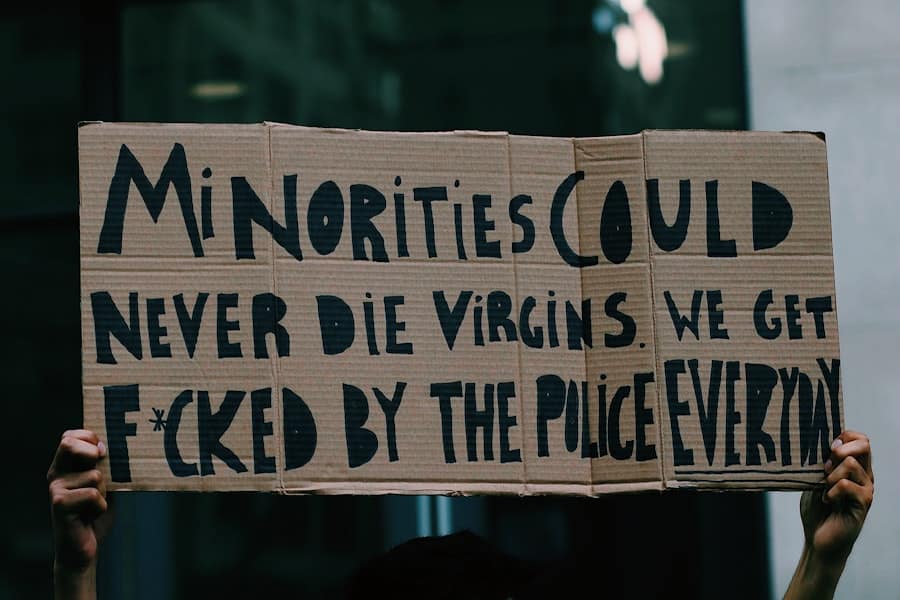 MiNORiTiES COULD
NEVER DiE ViRGiNS. WE GET
F*CKED BY THE POLiCE EVERYDAY